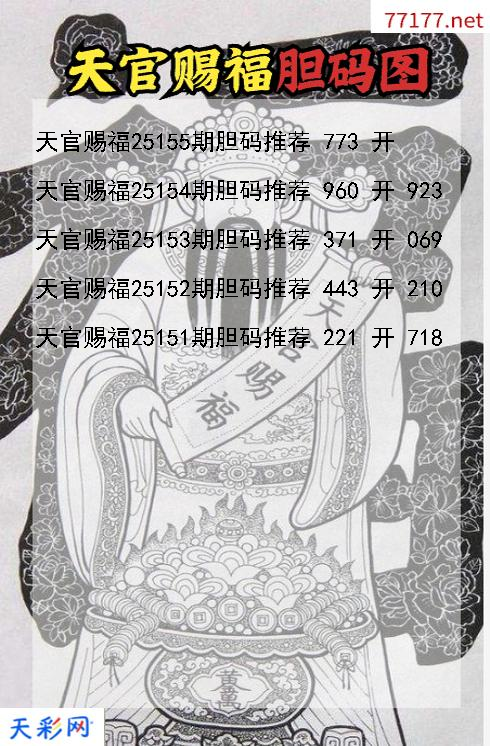 77177.net
天官赐福胆码图
天官赐福25155期胆码推荐 773 开
天官赐福25154期胆码推荐 960 开 923
天官赐福25153期胆码推荐 371 开 069
天官赐福25152期胆码推荐 443 开 210
天官赐福25151期胆码推荐 221 开 718
天官赐福
天彩网